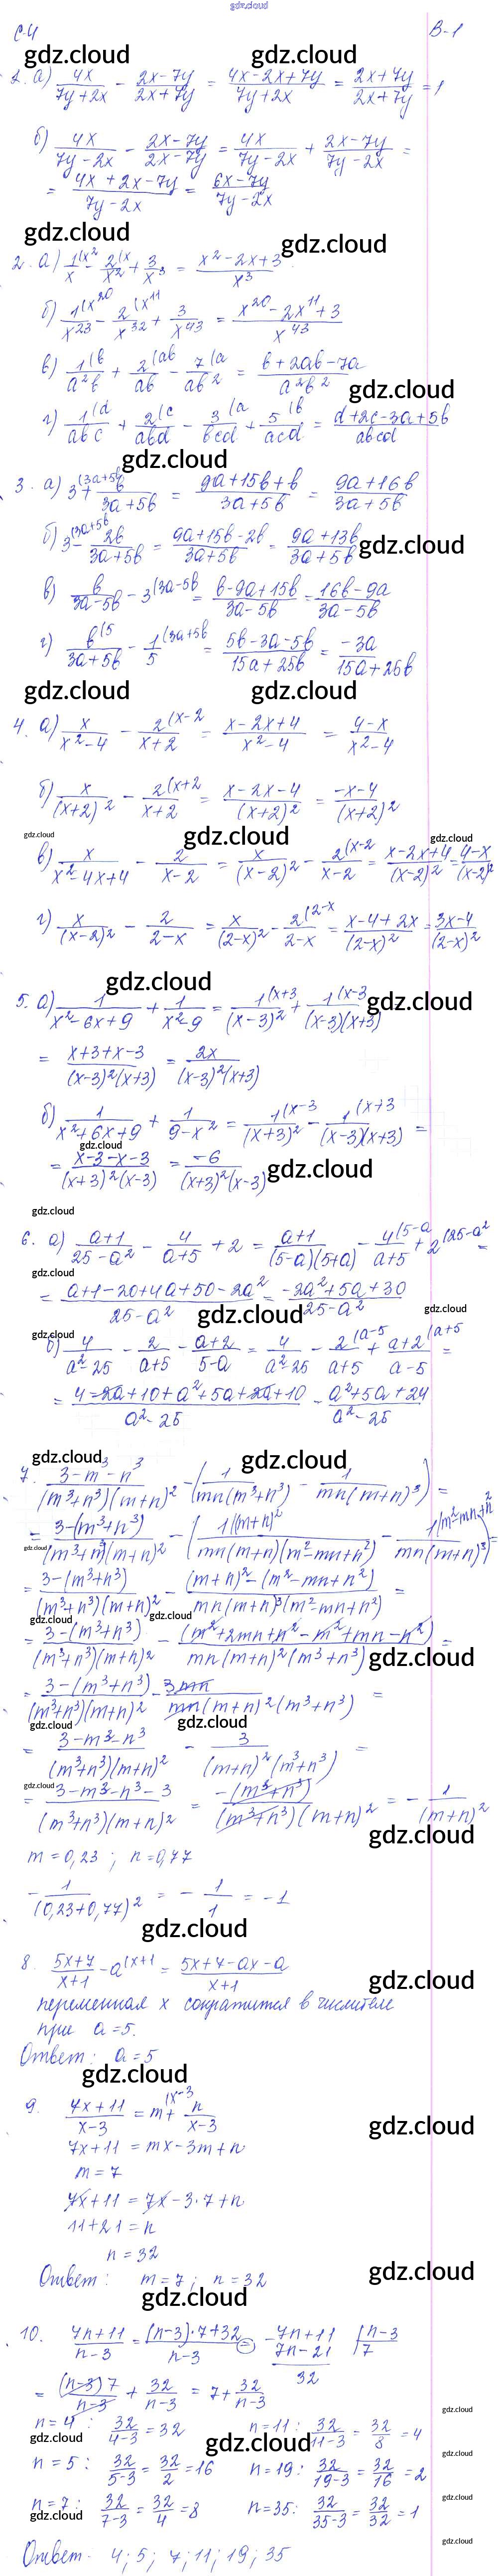 gdz.cloud
С-4 В-1
gdz.cloud gdz.cloud
2. а) 4x/(7y+2x) - (2x-7y)/(2x+7y) = (4x-2x+7y)/(7y+2x) = (2x+7y)/(2x+7y) = 1
б) 4x/(7y-2x) - (2x-7y)/(2x-7y) = 4x/(7y-2x) + (2x-7y)/(7y-2x) =
= (4x+2x-7y)/(7y-2x) = (6x-7y)/(7y-2x)
gdz.cloud gdz.cloud
2. а) 1/x (x² - 2/x² (x + 3/x³ = (x²-2x+3)/x³
б) 1/x²³ (x²⁰ - 2/x³² (x¹¹ + 3/x⁴³ = (x²⁰-2x¹¹+3)/x⁴³
в) 1/(a²b) (b + 2/(ab) (ab - 7/(ab²) (a = (b+2ab-7a)/(a²b²)
gdz.cloud
г) 1/(abc) (d + 2/(abd) (c - 3/(bcd) (a + 5/(acd) (b = (d+2c-3a+5b)/(abcd)
gdz.cloud
3. а) 3 (3a+5b + b/(3a+5b) = (9a+15b+b)/(3a+5b) = (9a+16b)/(3a+5b)
б) 3 (3a+5b - 2b/(3a+5b) = (9a+15b-2b)/(3a+5b) = (9a+13b)/(3a+5b)
gdz.cloud
в) b/(3a-5b) - 3 (3a-5b = (b-9a+15b)/(3a-5b) = (16b-9a)/(3a-5b)
г) b/(3a+5b) (5 - 1/5 (3a+5b = (5b-3a-5b)/(15a+25b) = -3a/(15a+25b)
gdz.cloud gdz.cloud
4. а) x/(x²-4) - 2/(x+2) (x-2 = (x-2x+4)/(x²-4) = (4-x)/(x²-4)
б) x/(x+2)² - 2/(x+2) (x+2 = (x-2x-4)/(x+2)² = (-x-4)/(x+2)²
gdz.cloud gdz.cloud gdz.cloud
в) x/(x²-4x+4) - 2/(x-2) = x/(x-2)² - 2/(x-2) (x-2 = (x-2x+4)/(x-2)² = (4-x)/(x-2)²
г) x/(x-2)² - 2/(2-x) = x/(2-x)² - 2/(2-x) (2-x = (x-4+2x)/(2-x)² = (3x-4)/(2-x)²
gdz.cloud gdz.cloud
5. а) 1/(x²-6x+9) + 1/(x²-9) = 1/(x-3)² (x+3 + 1/((x-3)(x+3)) (x-3
= (x+3+x-3)/((x-3)²(x+3)) = 2x/((x-3)²(x+3))
б) 1/(x²+6x+9) + 1/(9-x²) = 1/(x+3)² (x-3 - 1/((x-3)(x+3)) (x+3 =
gdz.cloud
= (x-3-x-3)/((x+3)²(x-3)) = -6/((x+3)²(x-3))
gdz.cloud
gdz.cloud
6. а) (a+1)/(25-a²) - 4/(a+5) + 2 = (a+1)/((5-a)(5+a)) - 4/(a+5) (5-a + 2 (25-a² =
gdz.cloud
= (a+1-20+4a+50-2a²)/(25-a²) = (-2a²+5a+30)/(25-a²)
gdz.cloud gdz.cloud
gdz.cloud
б) 4/(a²-25) - 2/(a+5) - (a+2)/(5-a) = 4/(a²-25) - 2/(a+5) (a-5 + (a+2)/(a-5) (a+5 =
= (4-2a+10+a²+5a+2a+10)/(a²-25) = (a²+5a+24)/(a²-25)
gdz.cloud gdz.cloud
7. (3-m³-n³)/((m³+n³)(m+n)²) - (1/(mn(m³+n³)) - 1/(mn(m+n)³)) =
= (3-(m³+n³))/((m³+n³)(m+n)²) - (1/(mn(m+n)(m²-mn+n²)) ((m+n)² - 1/(mn(m+n)³) (m²-mn+n²) =
gdz.cloud
= (3-(m³+n³))/((m³+n³)(m+n)²) - ((m+n)²-(m²-mn+n²))/(mn(m+n)³(m²-mn+n²)) =
gdz.cloud gdz.cloud
= (3-(m³+n³))/((m³+n³)(m+n)²) - (m²+2mn+n²-m²+mn-n²)/(mn(m+n)²(m³+n³)) =
gdz.cloud
= (3-(m³+n³))/((m³+n³)(m+n)²) - 3mn/(mn(m+n)²(m³+n³)) =
gdz.cloud gdz.cloud
= (3-m³-n³)/((m³+n³)(m+n)²) - 3/((m+n)²(m³+n³)) =
gdz.cloud
= (3-m³-n³-3)/((m³+n³)(m+n)²) = -(m³+n³)/((m³+n³)(m+n)²) = - 1/(m+n)²
gdz.cloud
m = 0,23 ; n = 0,77
- 1/(0,23+0,77)² = - 1/1 = -1
gdz.cloud
8. (5x+7)/(x+1) - a (x+1 = (5x+7-ax-a)/(x+1)
gdz.cloud
переменная x сократится в числителе
при a=5.
Ответ: a=5
gdz.cloud
9. (7x+11)/(x-3) = m (x-3 + n/(x-3)
gdz.cloud
7x+11 = mx-3m+n
m = 7
7x+11 = 7x-3·7+n
11+21 = n
n = 32
gdz.cloud
Ответ: m=7; n=32
gdz.cloud
10. (7n+11)/(n-3) = ((n-3)·7+32)/(n-3) = 7n+11 | n-3
7n-21 7
32
= (n-3)7/(n-3) + 32/(n-3) = 7 + 32/(n-3)
gdz.cloud
n=4: 32/(4-3) = 32 n=11: 32/(11-3) = 32/8 = 4
gdz.cloud gdz.cloud gdz.cloud
n=5: 32/(5-3) = 32/2 = 16 n=19: 32/(19-3) = 32/16 = 2
gdz.cloud
n=7: 32/(7-3) = 32/4 = 8 n=35: 32/(35-3) = 32/32 = 1
gdz.cloud gdz.cloud
gdz.cloud
Ответ. 4; 5; 7; 11; 19; 35